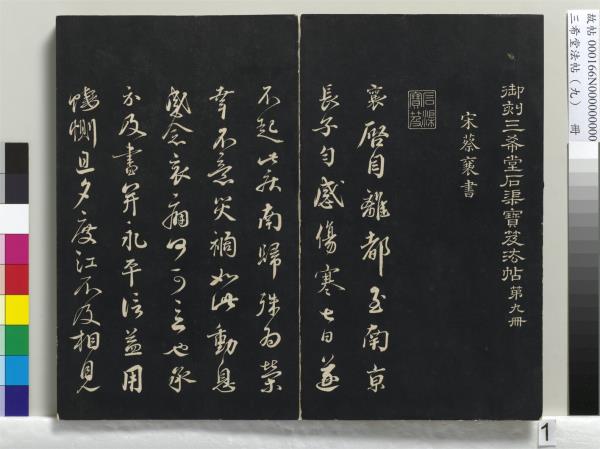 故帖 000166N000000000
三希堂法帖（九） 冊
御刻三希堂石渠寶笈法帖 第九冊
宋蔡襄書
石渠寶笈
襄啓自離都至南京
長子勻感傷寒七日遂
不起此疾南歸殊為榮
幸不意災禍如此動息
感念哀痛何可言也承
示及書并永平信益用
悽惻旦夕度江不及相見
1